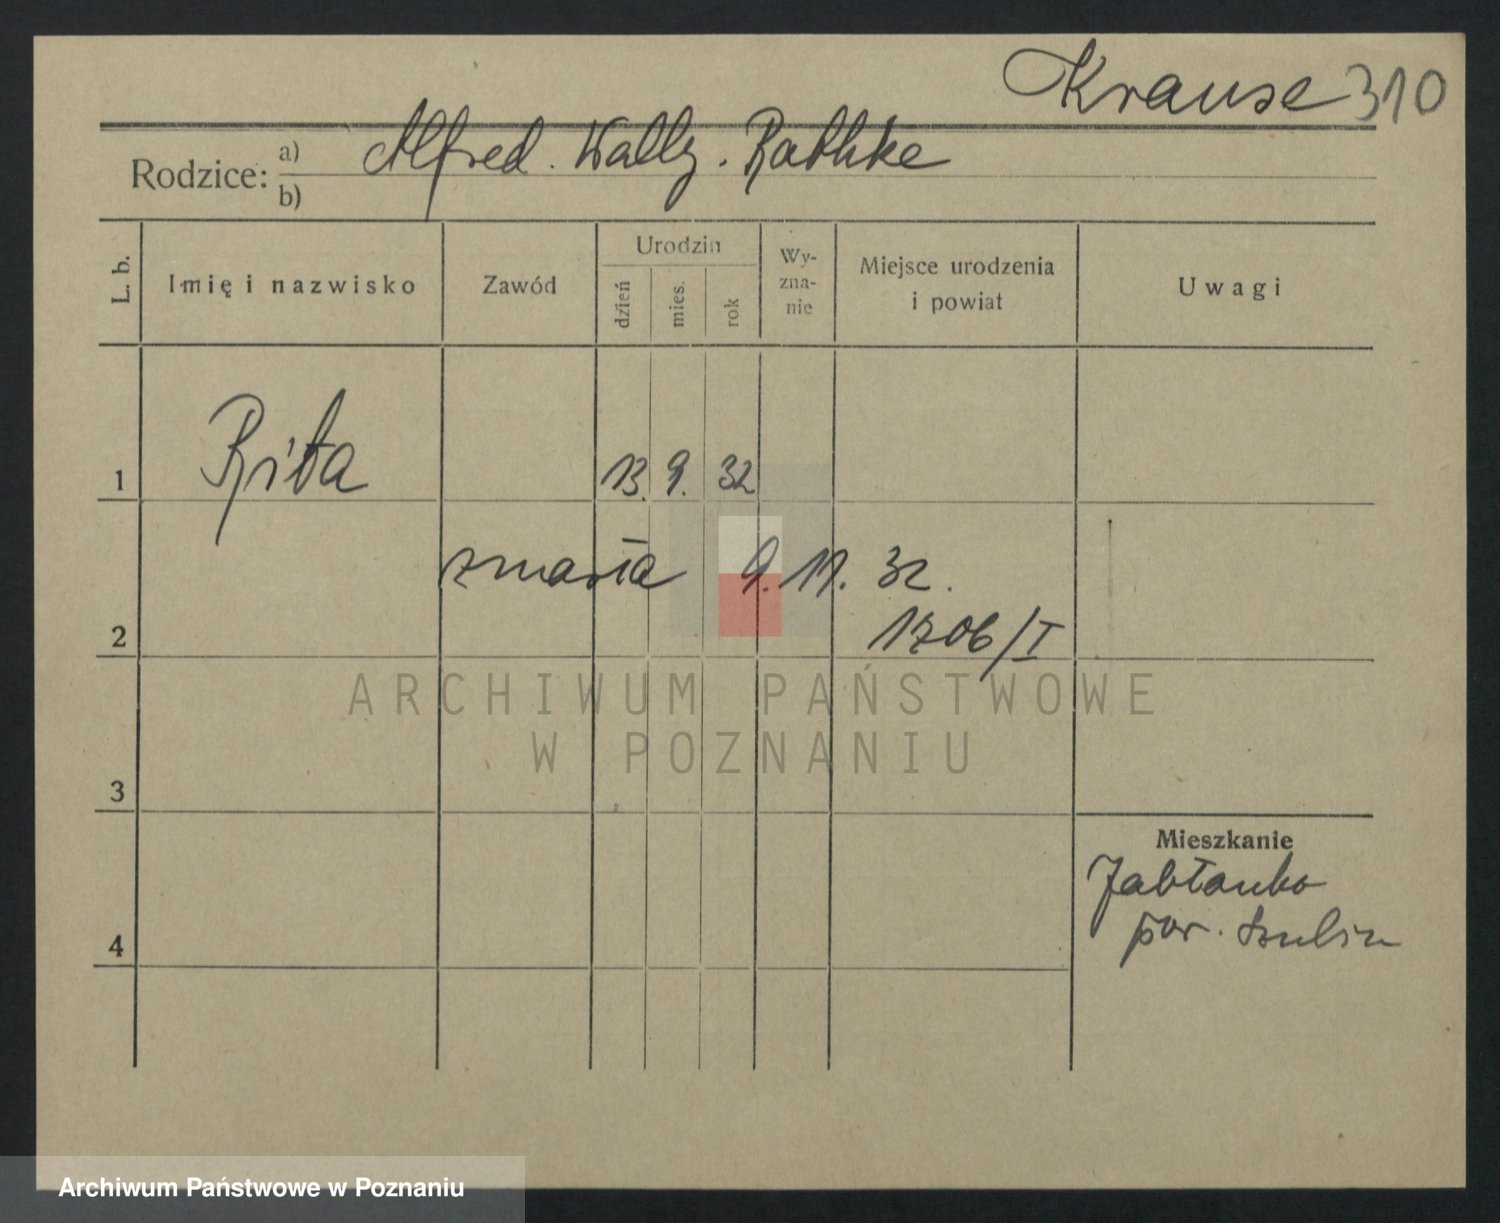 Krause 310
Rodzice: a) Alfred. Wally. Rathke
b)
L. b.
Imię i nazwisko
Zawód
Urodzin
dzień
mies.
rok
Wy-
zna-
nie
Miejsce urodzenia
i powiat
Uwagi
1 Rita 13. 9. 32
zmarła 9. 11. 32.
2 1706/I
ARCHIWUM PAŃSTWOWE
W POZNANIU
3
Mieszkanie
Jabłonko
pow. Szubin
4
Archiwum Państwowe w Poznaniu